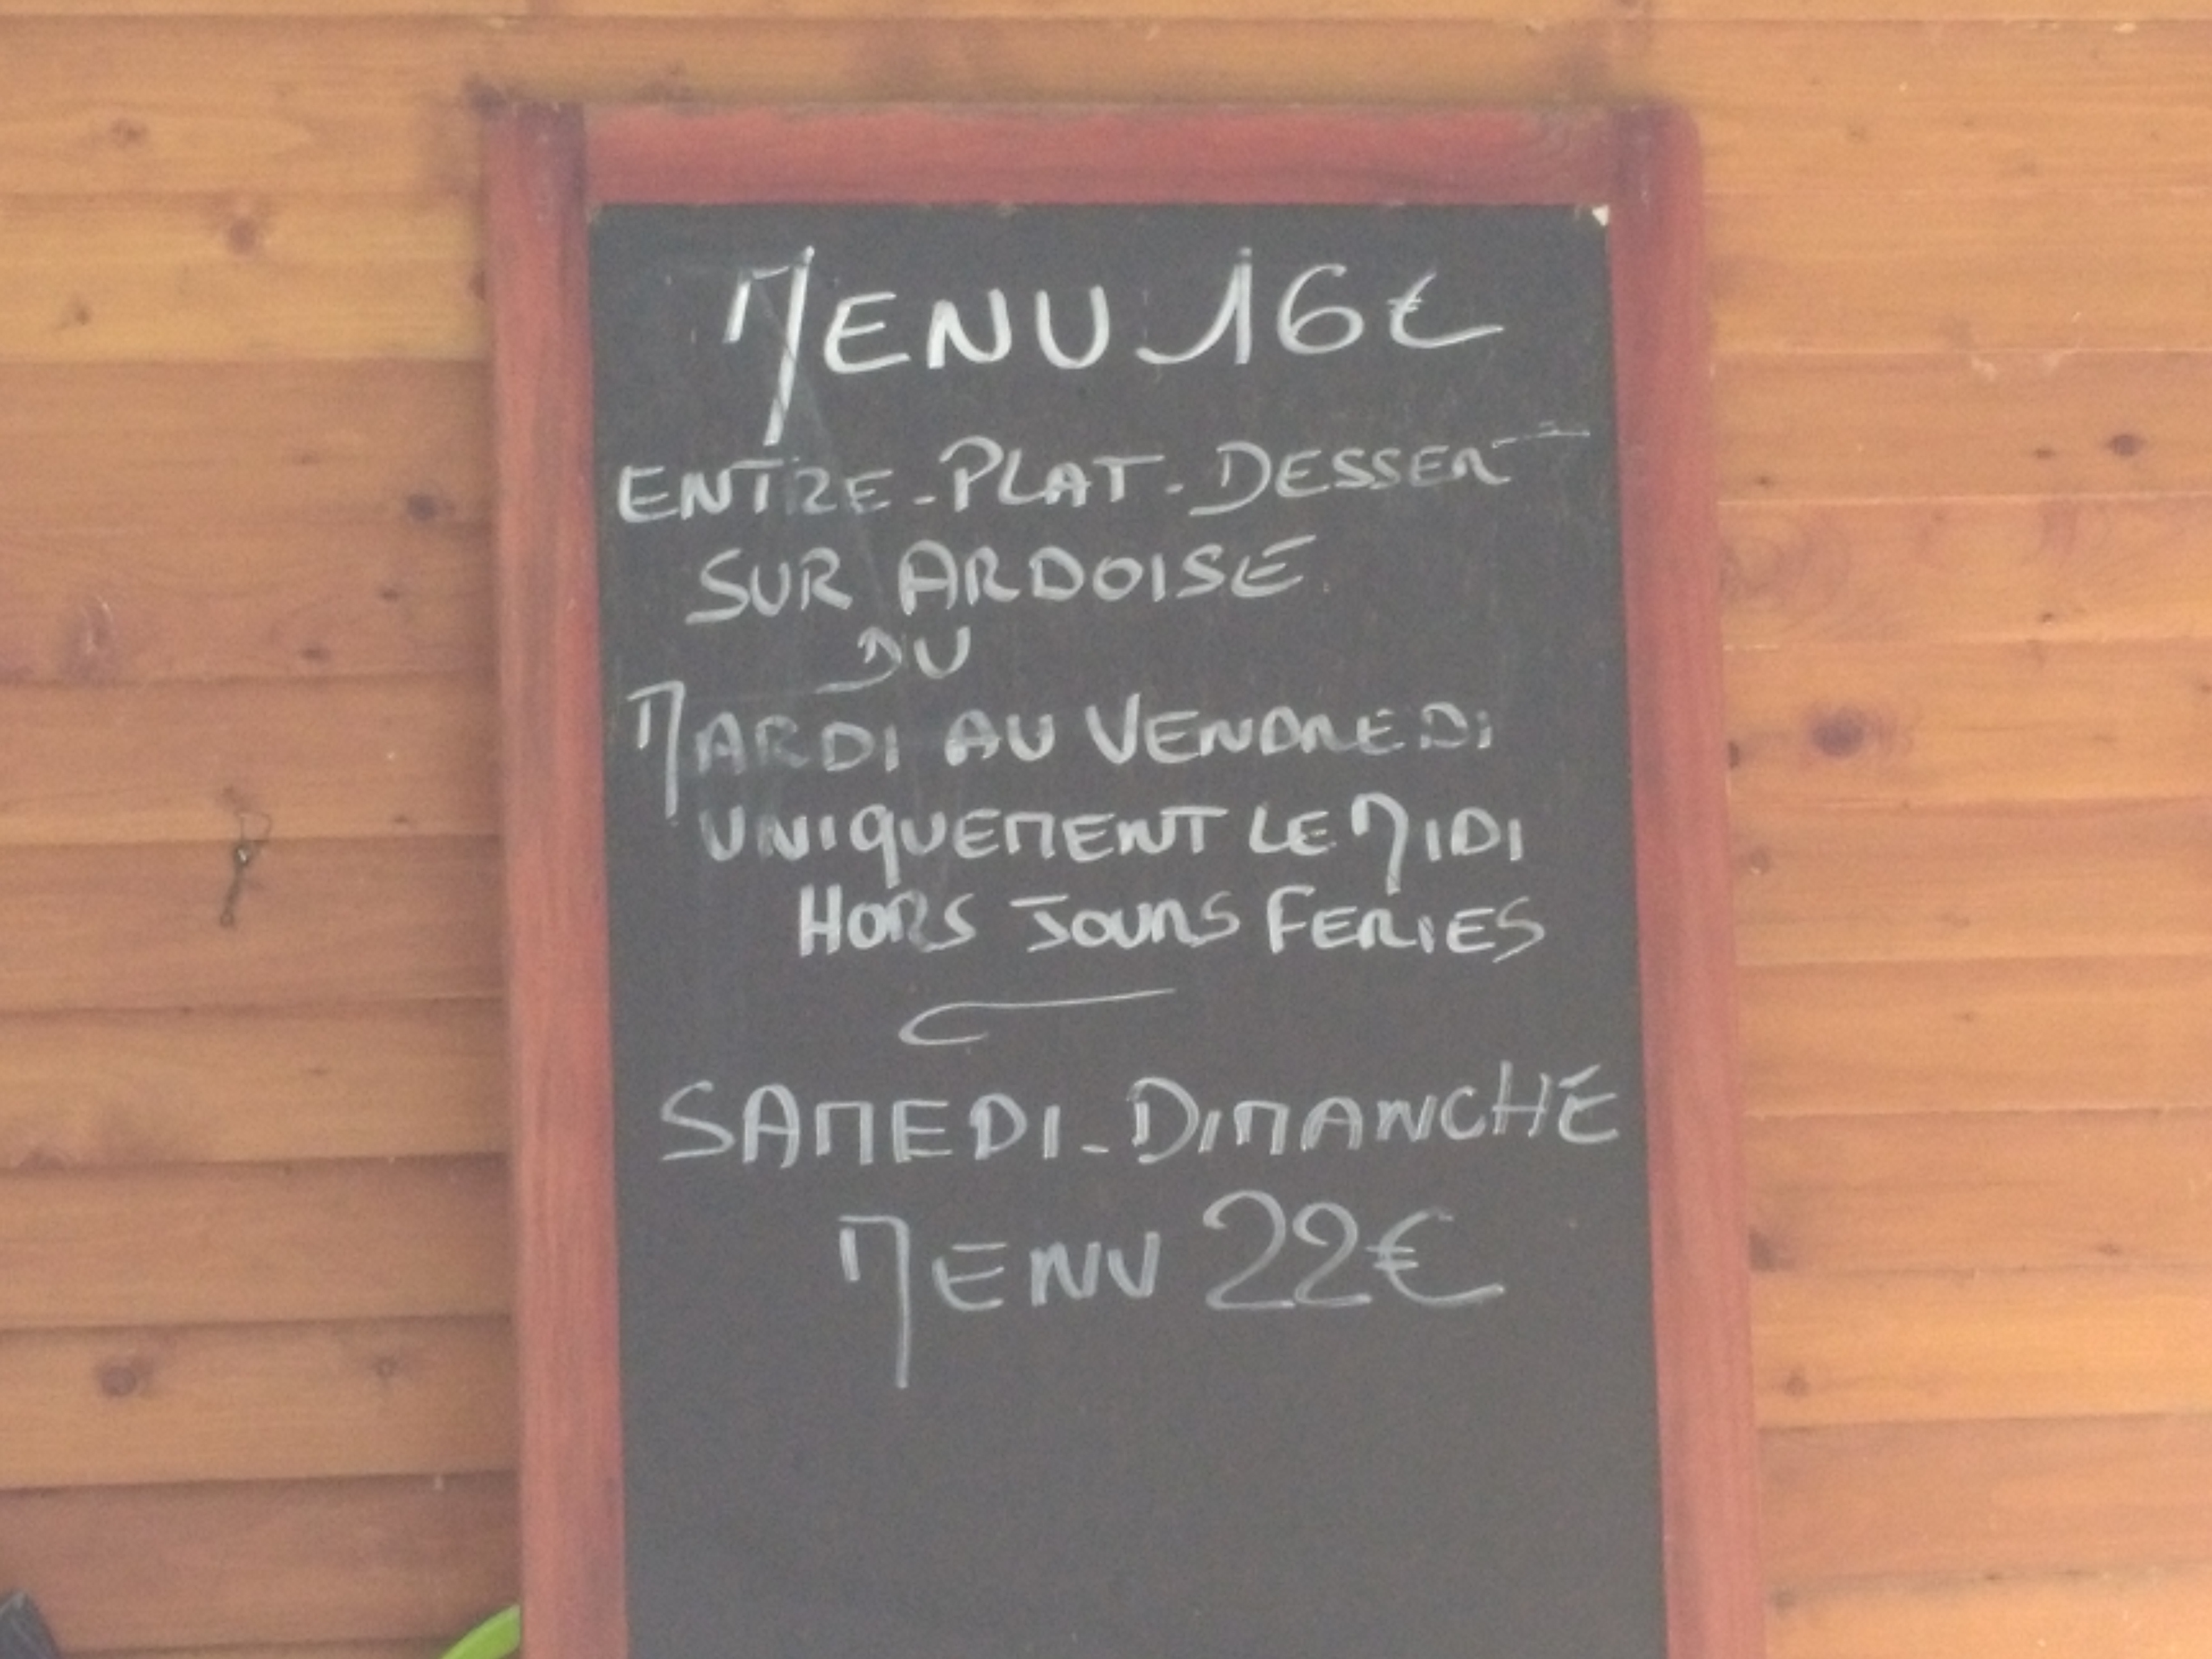 MENU 16€
ENTRE-PLAT-DESSERT
SUR ARDOISE
DU
MARDI AU VENDREDI
UNIQUEMENT LE MIDI
HORS JOURS FERIES
SAMEDI-DIMANCHE
MENU 22€